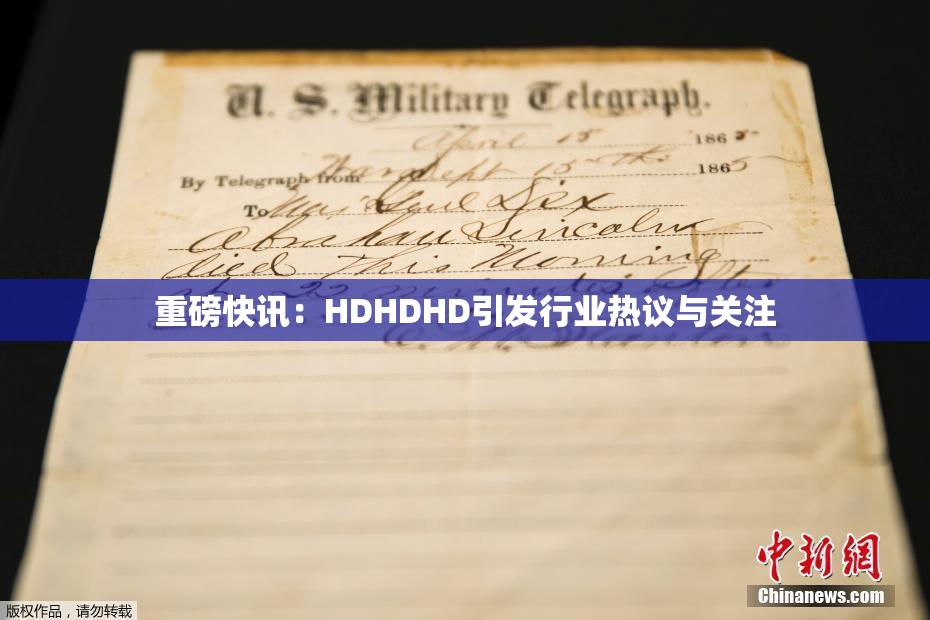 U. S. Military Telegraph.
April 15 1865
By Telegraph from War Dept 15th 1865
To Maj Genl Dix
Abraham Lincoln
died This Morning
at 22 minutes after
重磅快讯：HDHDHD引发行业热议与关注
E. M. Stanton
中新网
Chinanews.com
版权作品，请勿转载